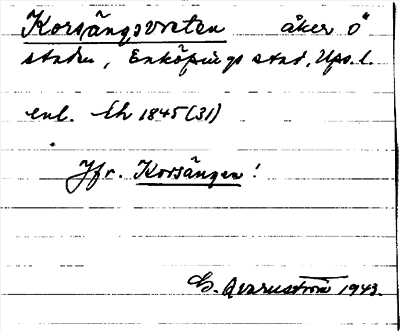 Korsängsvreten åker Ö
staden, Enköpings stad, Ups. l.
enl. Ek 1845 (31)
Jfr. Korsängen!
G. Qvarnström 1943.